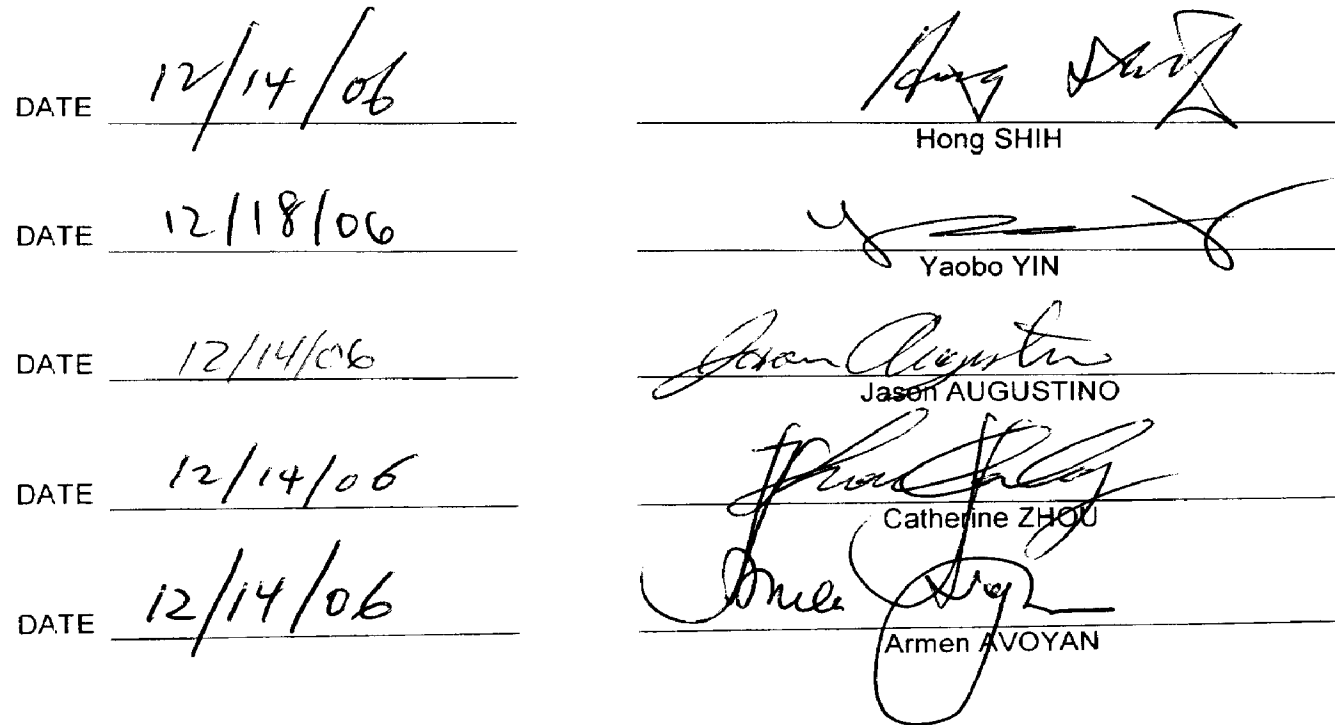 DATE 12/14/06
Hong SHIH
DATE 12/18/06
Yaobo YIN
DATE 12/14/06 Jason Augustino
Jason AUGUSTINO
DATE 12/14/06
Catherine ZHOU
DATE 12/14/06
Armen AVOYAN